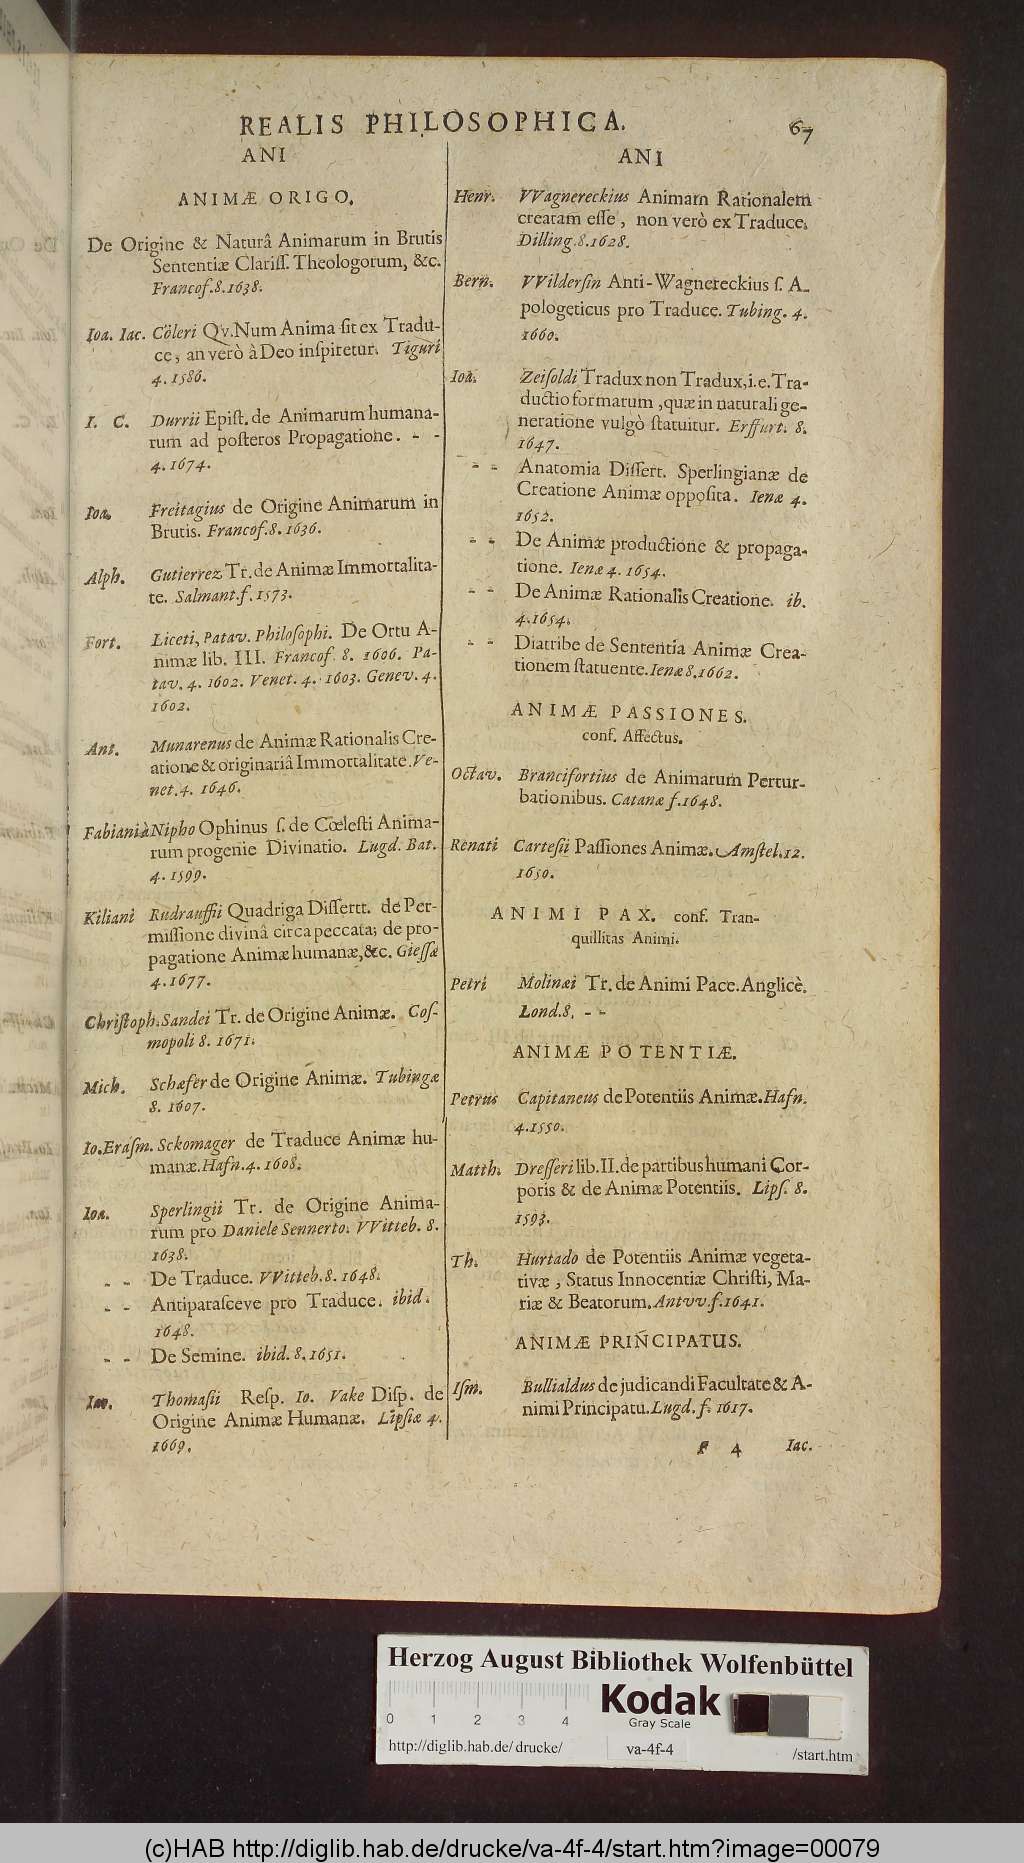 REALIS PHILOSOPHICA.
67
ANI
ANIMÆ ORIGO.
De Origine & Naturâ Animarum in Brutis
Sententiæ Clariſſ. Theologorum, &c.
Francof.8.1638.
Ioa. Iac. Cöleri Qv.Num Anima ſit ex Tradu-
ce, an verò â Deo inſpiretur. Tiguri
4.1586.
I. C. Durrii Epiſt. de Animarum humana-
rum ad poſteros Propagatione. - -
4.1674.
Ioa. Freitagius de Origine Animarum in
Brutis. Francof.8.1636.
Alph. Gutierrez Tr. de Animæ Immortalita-
te. Salmant.f.1573.
Fort. Liceti, Patav. Philoſophi. De Ortu A-
nimæ lib. III. Francof. 8. 1606. Pa-
tav. 4. 1602. Venet. 4. 1603. Genev. 4.
1602.
Ant. Munarenus de Animæ Rationalis Cre-
atione & originariâ Immortalitate. Ve-
net.4. 1646.
Fabiani à Nipho Ophinus ſ. de Cœleſti Anima-
rum progenie Divinatio. Lugd. Bat.
4. 1599.
Kiliani Rudrauffii Quadriga Diſſertt. de Per-
miſſione divinâ circa peccata; de pro-
pagatione Animæ humanæ, &c. Gieſſæ
4.1677.
Chriſtoph. Sandei Tr. de Origine Animæ. Coſ-
mopoli 8. 1671.
Mich. Schæfer de Origine Animæ. Tubingæ
8. 1607.
Io. Eraſm. Sckomager de Traduce Animæ hu-
manæ. Hafn.4. 1608.
Ioa. Sperlingii Tr. de Origine Anima-
rum pro Daniele Sennerto. VVitteb. 8.
1638.
- - De Traduce. VVitteb. 8. 1648.
- - Antiparaſceve pro Traduce. ibid.
1648.
- - De Semine. ibid. 8. 1651.
Iac. Thomaſii Reſp. Io. Vake Diſp. de
Origine Animæ Humanæ. Lipſiæ 4.
1669.
ANI
Henr. VVagnereckius Animam Rationalem
creatam eſſe, non verò ex Traduce.
Dilling.8.1628.
Bern. VVilderſin Anti-Wagnereckius ſ. A-
pologeticus pro Traduce. Tubing. 4.
1660.
Ioa. Zeiſoldi Tradux non Tradux, i.e. Tra-
ductio formarum, quæ in naturali ge-
neratione vulgò ſtatuitur. Erffurt. 8.
1647.
- - Anatomia Diſſert. Sperlingianæ de
Creatione Animæ oppoſita. Ienæ 4.
1652.
- - De Animæ productione & propaga-
tione. Ienæ 4. 1654.
- - De Animæ Rationalis Creatione. ib.
4.1654.
- - Diatribe de Sententia Animæ Crea-
tionem ſtatuente. Ienæ 8.1662.
ANIMÆ PASSIONES.
conf. Affectus.
Octav. Brancifortius de Animarum Pertur-
bationibus. Catanæ f.1648.
Renati Carteſii Paſſiones Animæ. Amſtel.12.
1650.
ANIMI PAX. conf. Tran-
quillitas Animi.
Petri Molinæi Tr. de Animi Pace. Anglicè.
Lond.8. - -
ANIMÆ POTENTIÆ.
Petrus Capitaneus de Potentiis Animæ. Hafn.
4.1550.
Matth. Dreſſeri lib. II. de partibus humani Cor-
poris & de Animæ Potentiis. Lipſ. 8.
1593.
Th. Hurtado de Potentiis Animæ vegeta-
tivæ, Status Innocentiæ Chriſti, Ma-
riæ & Beatorum. Antvv.f.1641.
ANIMÆ PRINCIPATUS.
Iſm. Bullialdus de judicandi Facultate & A-
nimi Principatu. Lugd. f. 1617.
F 4 Iac.
Herzog August Bibliothek Wolfenbüttel
Kodak
Gray Scale
0 1 2 3 4
http://diglib.hab.de/drucke/ va-4f-4 /start.htm
(c)HAB http://diglib.hab.de/drucke/va-4f-4/start.htm?image=00079